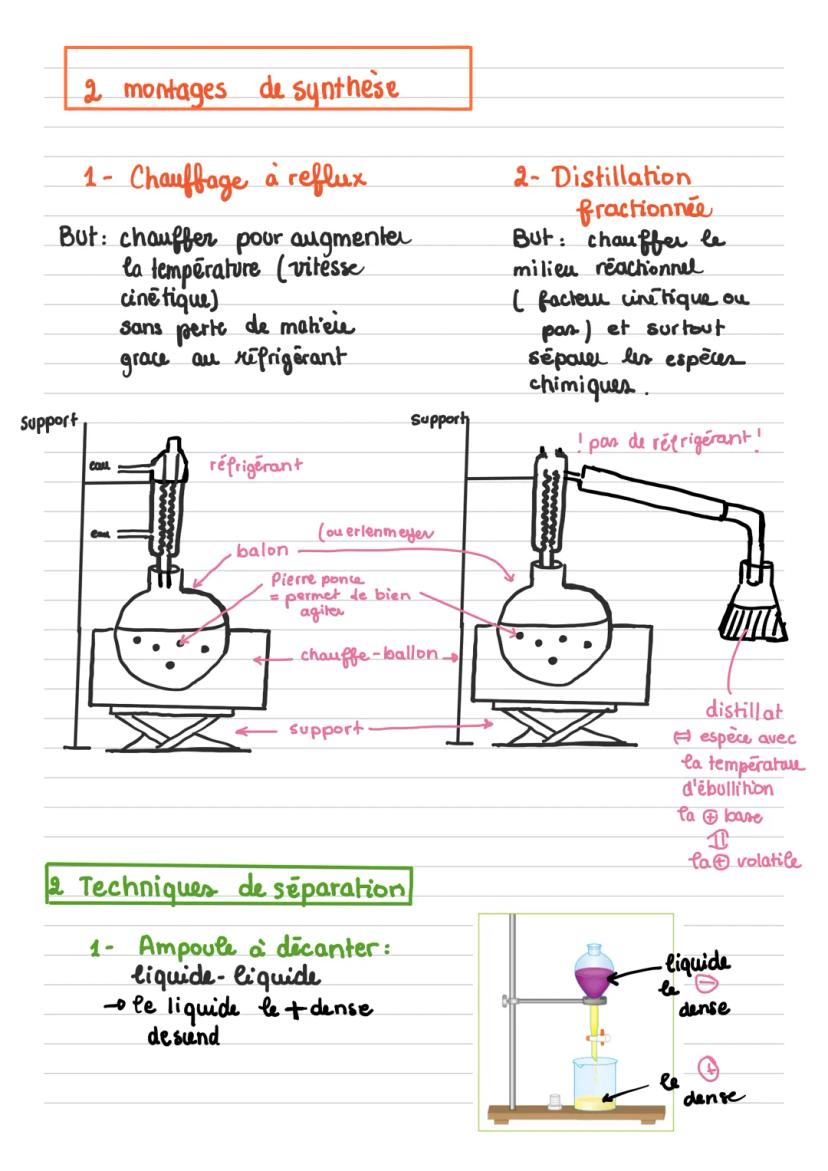 2 montages de synthèse
1- Chauffage à reflux
But: chauffer pour augmenter
la température (vitesse
cinétique)
sans perte de matière
grace au réfrigérant
2- Distillation
fractionnée
But: chauffer le
milieu réactionnel
( facteur cinétique ou
pas) et surtout
séparer les espèces
chimiques.
support
eau
eau
réfrigérant
support
! pas de réfrigérant !
balon
(ou erlenmeyer
Pierre ponce
= permet de bien
agiter
chauffe-ballon
support
distillat
⇔ espèce avec
la température
d'ébullition
la ⊕ basse
⇕
la ⊕ volatile
2 Techniques de séparation
1- Ampoule à décanter:
liquide-liquide
→ le liquide le + dense
descend
liquide
le ⊖
dense
le ⊕
dense